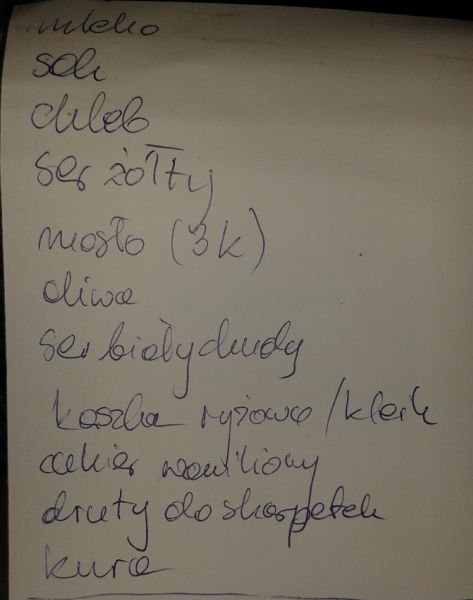 mleko
sok
chleb
ser żółty
masło (3k)
oliwa
ser biały chudy
kaszka ryżowa/kleik
cukier waniliowy
druty do skarpetek
kura